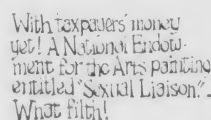 With taxpayers' money
yet! A National Endow-
ment for the Arts painting
entitled "Sexual Liaison."
What filth!